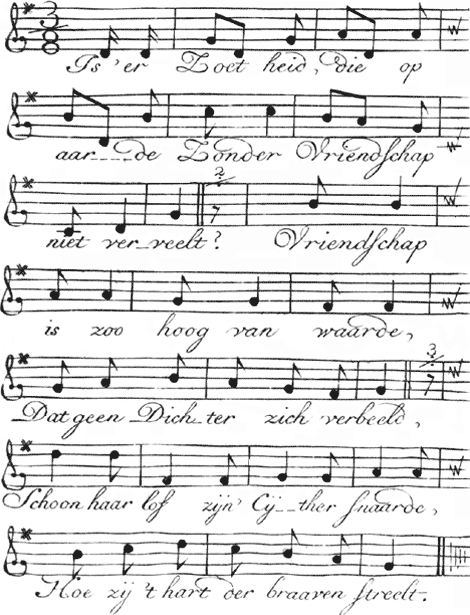 Is 'er Zoetheid, die op
aar___de Zonder Vriendschap
niet ver_veelt? Vriendschap
is zoo hoog van waarde,
Dat geen Dich_ter zich verbeeld,
Schoon haar lof zijn' Cy__ther snaarde,
Hoe zij 't hart der braaven streelt.